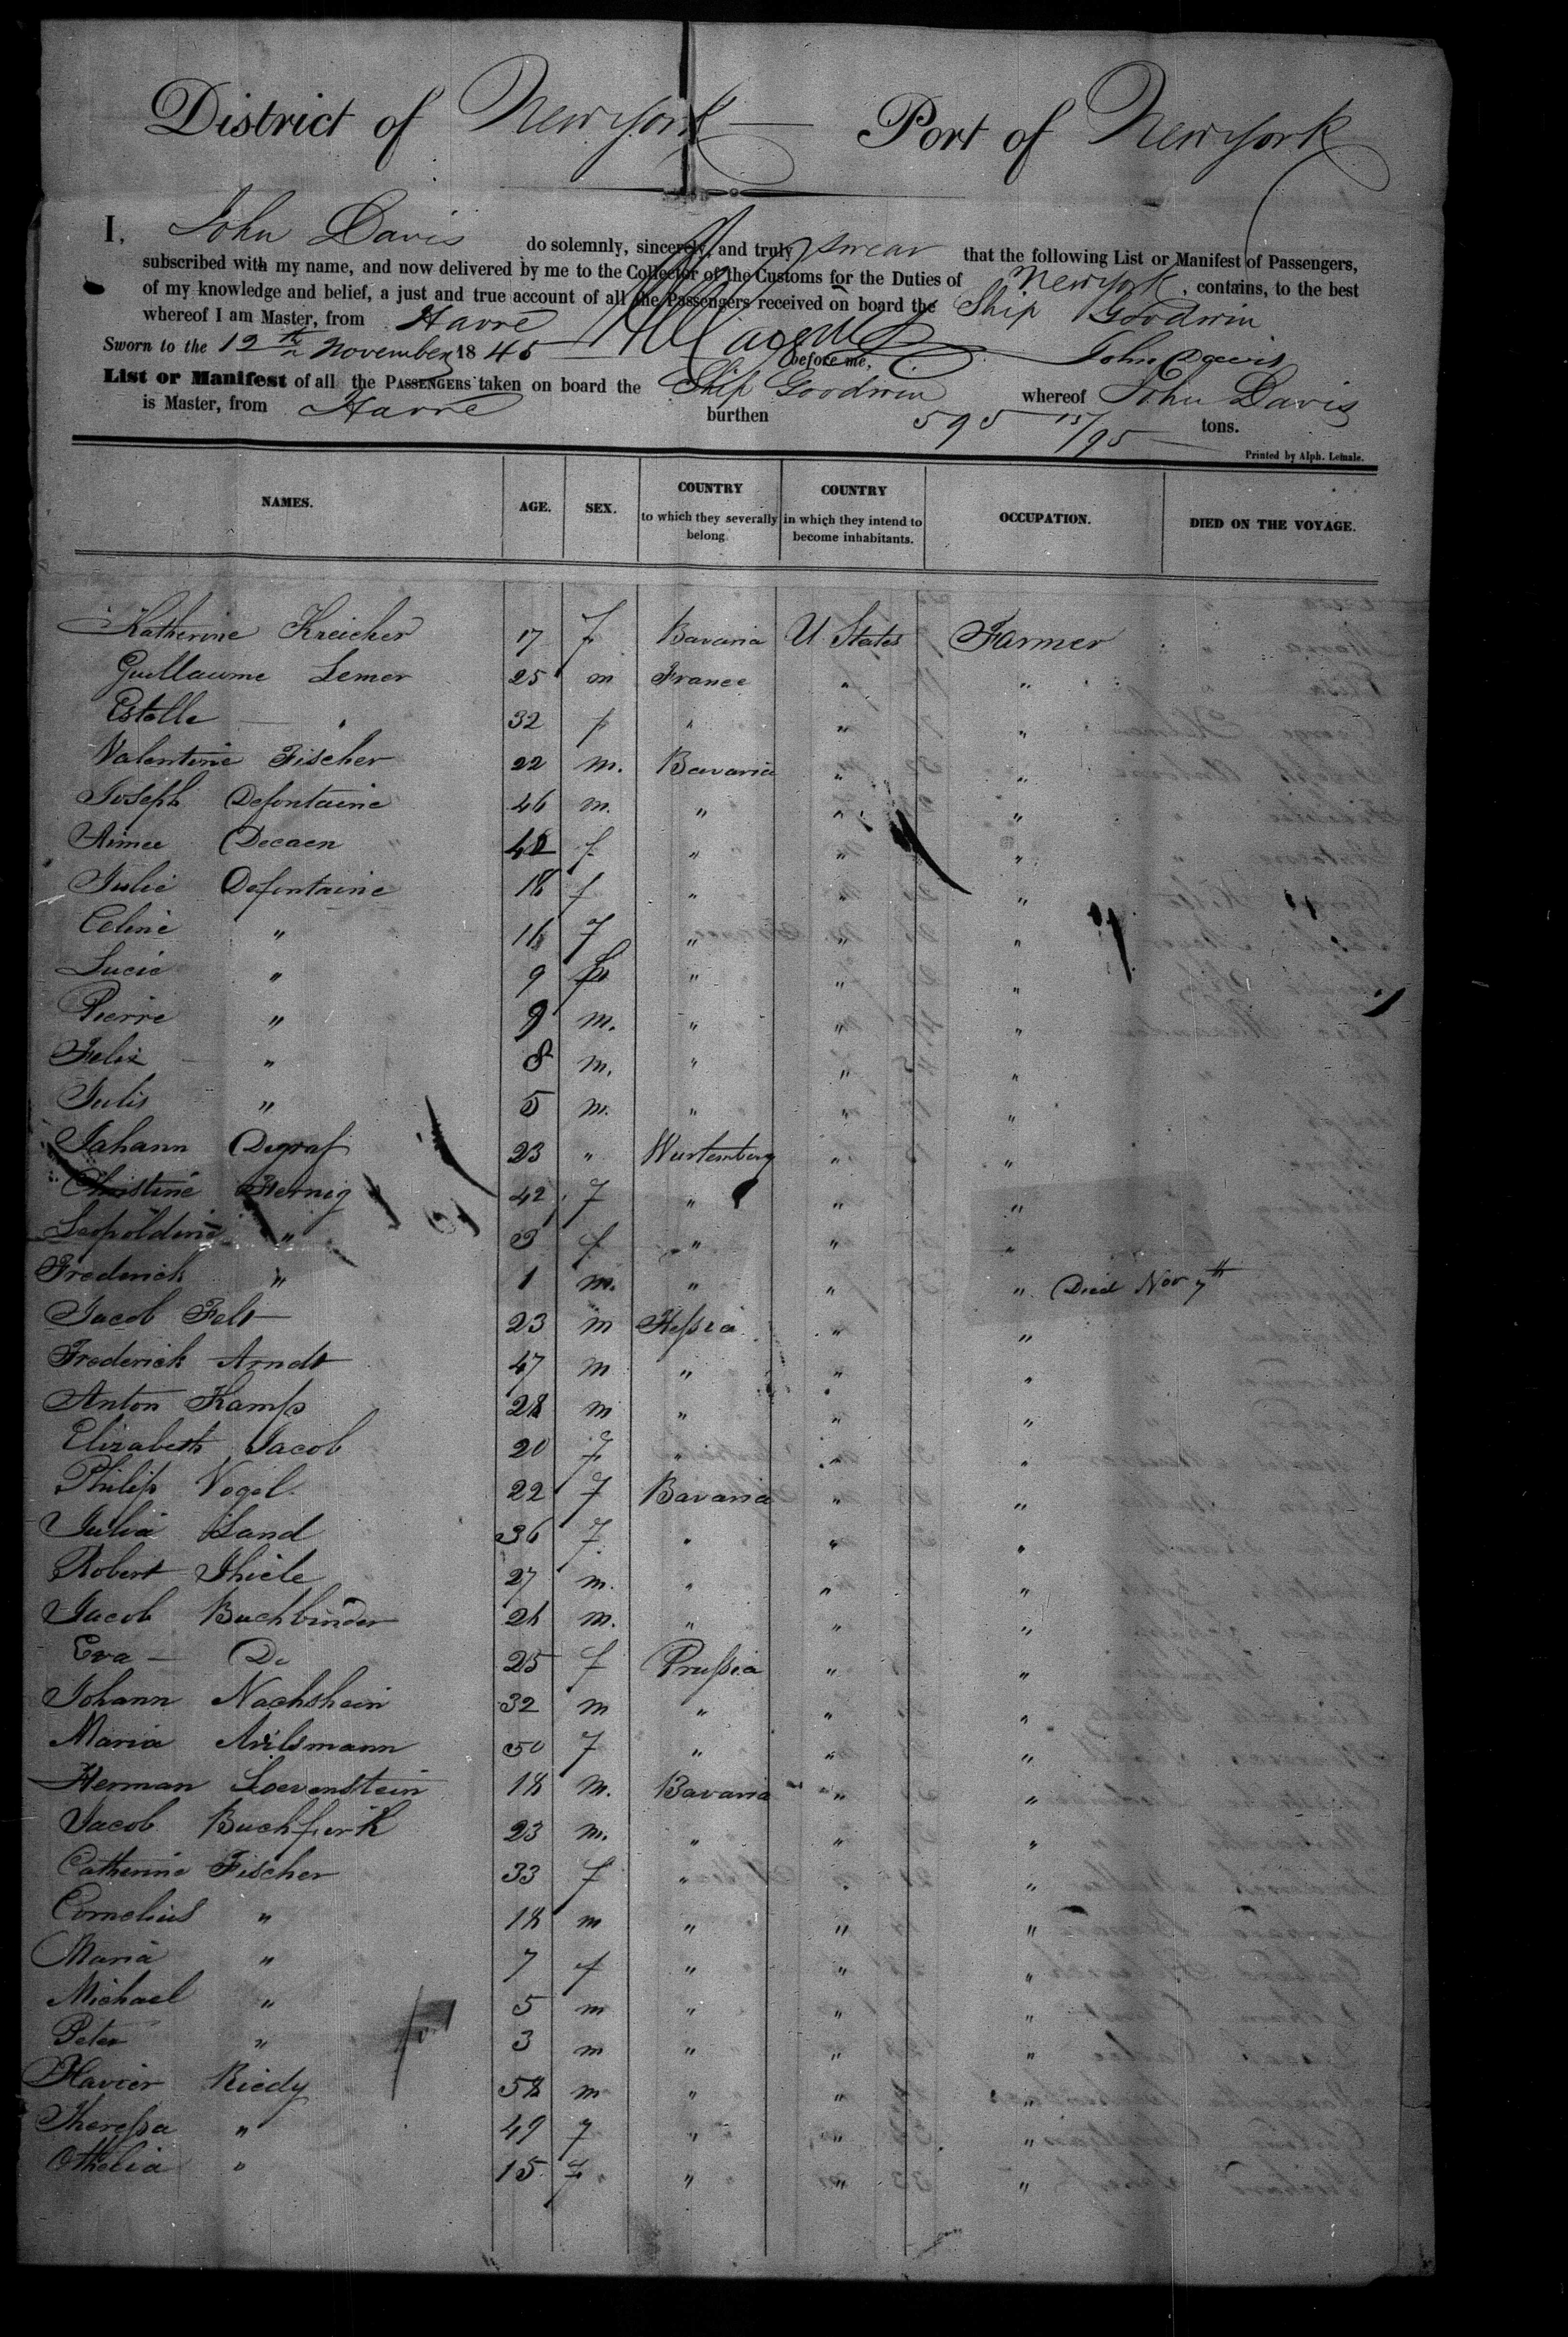 District of New York — Port of New York
I, John Davis do solemnly, sincerely, and truly swear that the following List or Manifest of Passengers,
subscribed with my name, and now delivered by me to the Collector of the Customs for the Duties of New York, contains, to the best
of my knowledge and belief, a just and true account of all the Passengers received on board the Ship Goodwin
whereof I am Master, from Havre
Sworn to the 12th November 1845 before me, John Davis
List or Manifest of all the PASSENGERS taken on board the Ship Goodwin whereof John Davis
is Master, from Havre burthen 595 15/95 tons.
Printed by Alph. Lemale.
NAMES. AGE. SEX. COUNTRY to which they severally belong. COUNTRY in which they intend to become inhabitants. OCCUPATION. DIED ON THE VOYAGE.
Katherine Kreicher 17 f Bavaria U States Farmer
Guillaume Lemer 25 m France " "
Estelle — " 32 f " " "
Valentine Fischer 22 m. Bavaria " "
Joseph Defontaine 46 m. " " "
Aimee Decaen 42 f " " "
Julie Defontaine 18 f " " "
Celine " 16 f " " "
Lucie " 9 f " " "
Pierre " 9 m. " " "
Felix " 8 m. " " "
Julis " 5 m. " " "
Johann Degraf 23 " Wurtemberg " "
Christine Hernig 42 f " " "
Leopoldine " 3 f " " "
Frederick " 1 m. " " " Died Nov 7th
Jacob Felt 23 m Hessia " "
Frederick Arndt 47 m " " "
Anton Kamps 28 m " " "
Elizabeth Jacob 20 f " " "
Philip Vogel 22 f Bavaria " "
Julia Land 36 f. " " "
Robert Thiele 27 m. " " "
Jacob Buchbinder 26 m. " " "
Eva — Do 25 f Prussia " "
Johann Nachshein 32 m " " "
Maria 50 f " " "
Herman Loevenstein 18 m. Bavaria " "
Jacob 23 m. " " "
Catherine Fischer 33 f " " "
Cornelius " 18 m " " "
Maria " 7 f " " "
Michael " 5 m " " "
Peter " 3 m " " "
Xavier Riedy 58 m " " "
Theressa " 49 f " " "
Othelia " 15 f " " "